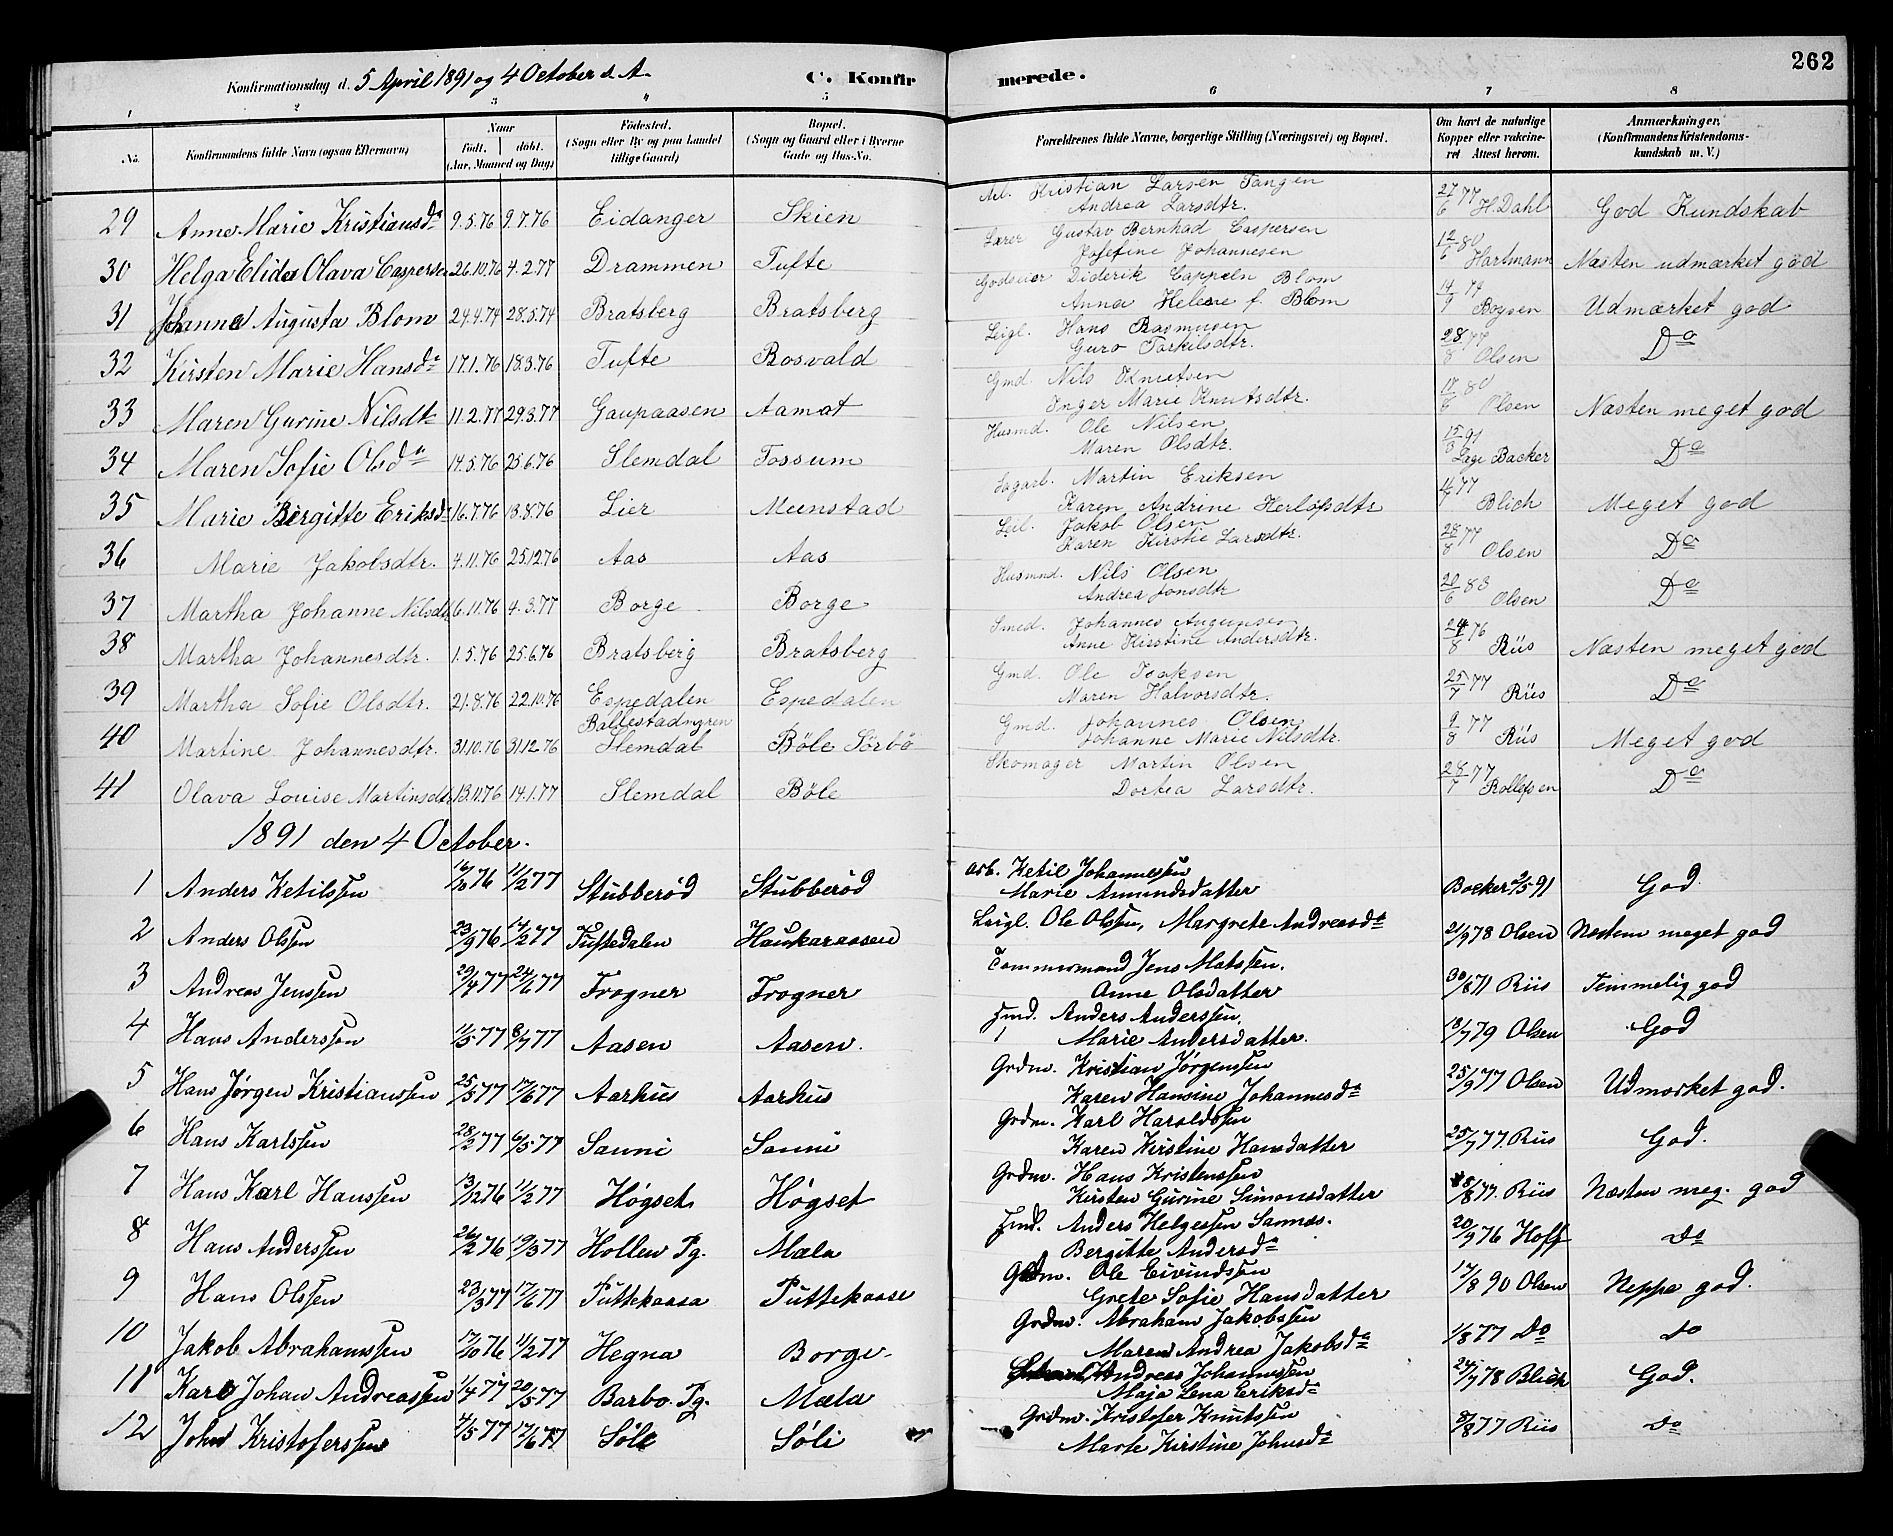 262
Konfirmationsdag d. 5 April 1891 og 4 October d. A. C. Konfirmerede.
1 2 3 4 5 6 7 8
No. Konfirmandens fulde Navn (ogsaa Efternavn) Naar født. døbt. (Aar, Maaned og Dag) Fødested. (Sogn eller By og paa Landet tillige Gaard) Bopæl. (Sogn og Gaard eller i Byerne Gade og Hus-No. Forældrenes fulde Navne, borgerlige Stilling (Næringsvei) og Bopæl. Om havt de naturlige Kopper eller vakcineret Attest herom. Anmærkninger. (Konfirmandens Kristendomskundskab m. V.)
29 Anne Marie Kristiansdr 9.5.76 9.7.76 Eidanger Skien Kristian Larsen Tangen Andrea Larsdtr. 27/6 77 H. Dahl God Kundskab
30 Helga Elida Olava Caspersen 26.10.76 4.2.77 Drammen Tufte Lærer Gustav Bernhad Caspersen Josefine Johannesen 12/6 80 Hartmann Næsten udmærket god
31 Johanne Augusta Blom 24.4.74 28.5.74 Bratsberg Bratsberg Godseier Diderik Cappeln Blom Anna Helene f. Blom 14/9 74 Boysen Udmærket god
32 Kirsten Marie Hansdr 17.1.76 18.3.76 Tufte Bosvald Leigl. Hans Rasmusen Guro Torkilsdtr. 28/8 77 Olsen Do
33 Maren Gurine Nilsdtr 11.2.77 29.3.77 Gaupaasen Aamot Gmd. Nils Knutsen Inger Marie Knutsdtr. 80 Olsen Næsten meget god
34 Maren Sofie Olsdr 14.5.76 25.6.76 Slemdal Fossum Husmd. Ole Nilsen Maren Olsdtr. 15/3 91 Læge Backer Do
35 Marie Birgitte Eriksdr 16.7.76 13.8.76 Lier Meenstad Sagarb. Martin Eriksen Karen Andrine Herlofsdtr 77 Blich Meget god
36 Marie Jakobsdtr. 4.11.76 25.12.76 Aas Aas Leil. Jakob Olsen Karen Kirstie Larsdtr. 28/8 77 Olsen Do
37 Martha Johanne Nilsdtr 6.11.76 4.3.77 Borge Borge Husmnd. Nils Olsen Andrea Jonsdtr 20/6 83 Olsen Do
38 Martha Johannesdtr. 1.5.76 25.6.76 Bratsberg Bratsberg Smed. Johannes Anne Kirstine Andersdtr. 24/8 76 Riis Næsten meget god
39 Martha Sofie Olsdtr. 21.8.76 22.10.76 Espedalen Espedalen Gmd. Ole Isaksen Maren Halvorsdtr. 25/7 77 Riis Do
40 Martine Johannesdtr. 31.10.76 31.12.76 Ballestadmyren Slemdal Böle Sörbö Gmd. Johannes Olsen Johanne Marie Nilsdtr. 9/8 77 Riis Meget god
41 Olava Louise Martinsdtr 13.11.76 14.1.77 Slemdal Böle Skomager Martin Olsen Dortea Larsdtr. 28/7 77 Rollefsen Do
1891 den 4 October.
1 Anders Ketilssen 16/10 76 11/2 77 Stubberød Stubberød Arb. Ketil Johannessen Marie Amundsdatter Backer 2/5 91 God
2 Anders Olssen 23/9 76 17/2 77 Tuftedalen Haukaraasen Leigl. Ole Olssen, Margrete Andreasdr 2/9 78 Olsen Næsten meget god
3 Andreas Jenssen 29/4 77 24/6 77 Frogner Frogner Tømmermand Jens Matssen. Anne Olsdatter 30/8 71 Riis Temmelig god
4 Hans Anderssen 1/5 77 8/7 77 Aasen Aasen. Hmd. Anders Anderssen. Marie Andersdatter. 18/7 79 Olsen God
5 Hans Jørgen Kristianssen 25/5 77 17/6 77 Aarhus Aarhus Grdm. Kristian Jørgenssen Karen Hansine Johannesdr 25/9 77 Olsen Udmærket god.
6 Hans Karlssen 28/2 77 6/5 77 Sanni Sanni Grdm. Karl Haraldssen Karen Kirstine Hansdatter 25/7 77. Riis God.
7 Hans Karl Hanssen 13/12 76 11/2 77 Høgset Høgset Grdm. Hans Kristenssen Kirsten Gurine Simonsdatter 8/8 77. Riis Næsten meg. god
8 Hans Anderssen 26/12 76 19/3 77 Hollen Pg. Mæla Hmd. Anders Helgessen Sannæs. Bergitte Andersdr 20/9 76 Hoff Do
9 Hans Olssen 23/3 77 17/6 77 Puttekaasa Puttekaase Grdm. Ole Eivindssen Grete Sofie Hansdatter 17/8 90 Olsen Neppe god.
10 Jakob Abrahamssen 17/10 76 11/2 77 Hegna Borge Grdm. Abraham Jakobssen Maren Andrea Jakobsdr 1/8 77 Do Do
11 Karl Johan Andreassen 1/4 77 20/5 77 Barbo. Pg. Mæla Andreas Johannessen Maja Lena Eriksdr 24/7 78 Blich God.
12 John Kristoferssen 4/5 77 17/6 77 Søli Søli Grdm. Kristofer Knutssen Marte Kirstine Johnsdr 8/8 77 Riis Do